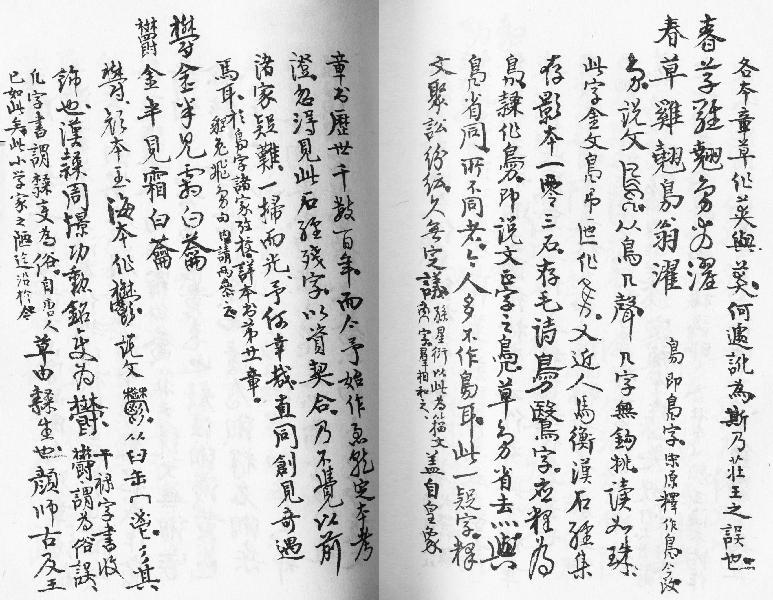 各本章草作英與莫何遽訛為斯乃莊王之誤也
春草雞翹鳧翁濯
春草雞翹鳧翁濯 鳧即鳧字宋原釋作鳥今改
說文 从鳥几聲几字無鉤挑讀如殊
此字金文鳧叔匜作 又近人馬衡漢石經集
存影本一零三石存毛詩鳧鷖字應釋為
鳧隸作鳧即說文正字之鳧草 省去灬與
鳧省同所不同者今人多不作鳧耳此一疑字釋
文聚訟紛紜久無定議 孫星衍以此為籀文 字羣相和之 蓋自皇象
章書歷世千數百年而今予始作急就定本考
證忽得見此石經殘字以資契合乃不覺以前
諸家疑難一掃而光予何幸哉直同創見奇遇
焉耳 於鳧字諸家 詳本書弟廿章
鬱金半見霜白䕬
欝金半見霜白䕬
欝顏本玉海本作鬱說文鬱从臼缶冖鬯彡其
飾也漢隸周憬功勳銘變為欝 干祿字書收欝謂為俗誤
化字書謂隸變為俗自唐人 草由隸生也顏師古及王
已如此矣此小學家之陋迄沿於今